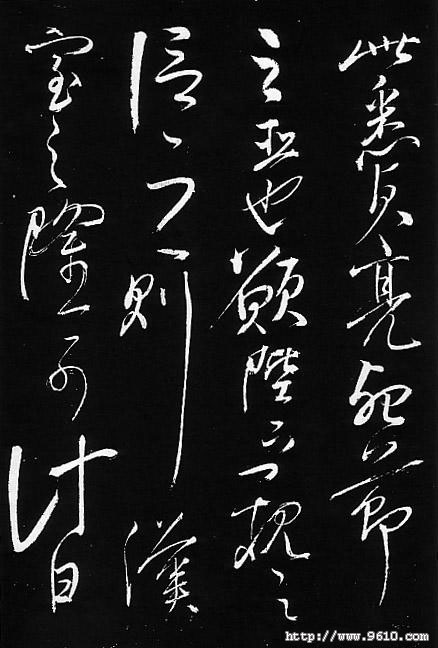 此悉貞亮死節
之臣也願陛下親之
信之則漢
室之隆可計日
http://www.9610.com